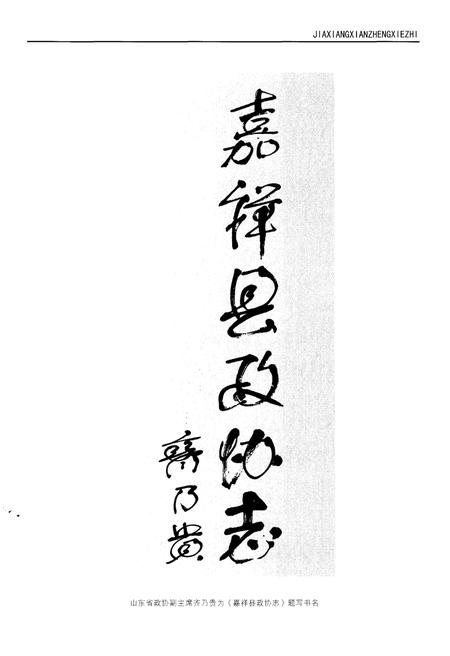 JIAXIANGXIANZHENGXIEZHI
嘉祥县政协志
齐乃贵
山东省政协副主席齐乃贵为《嘉祥县政协志》题写书名